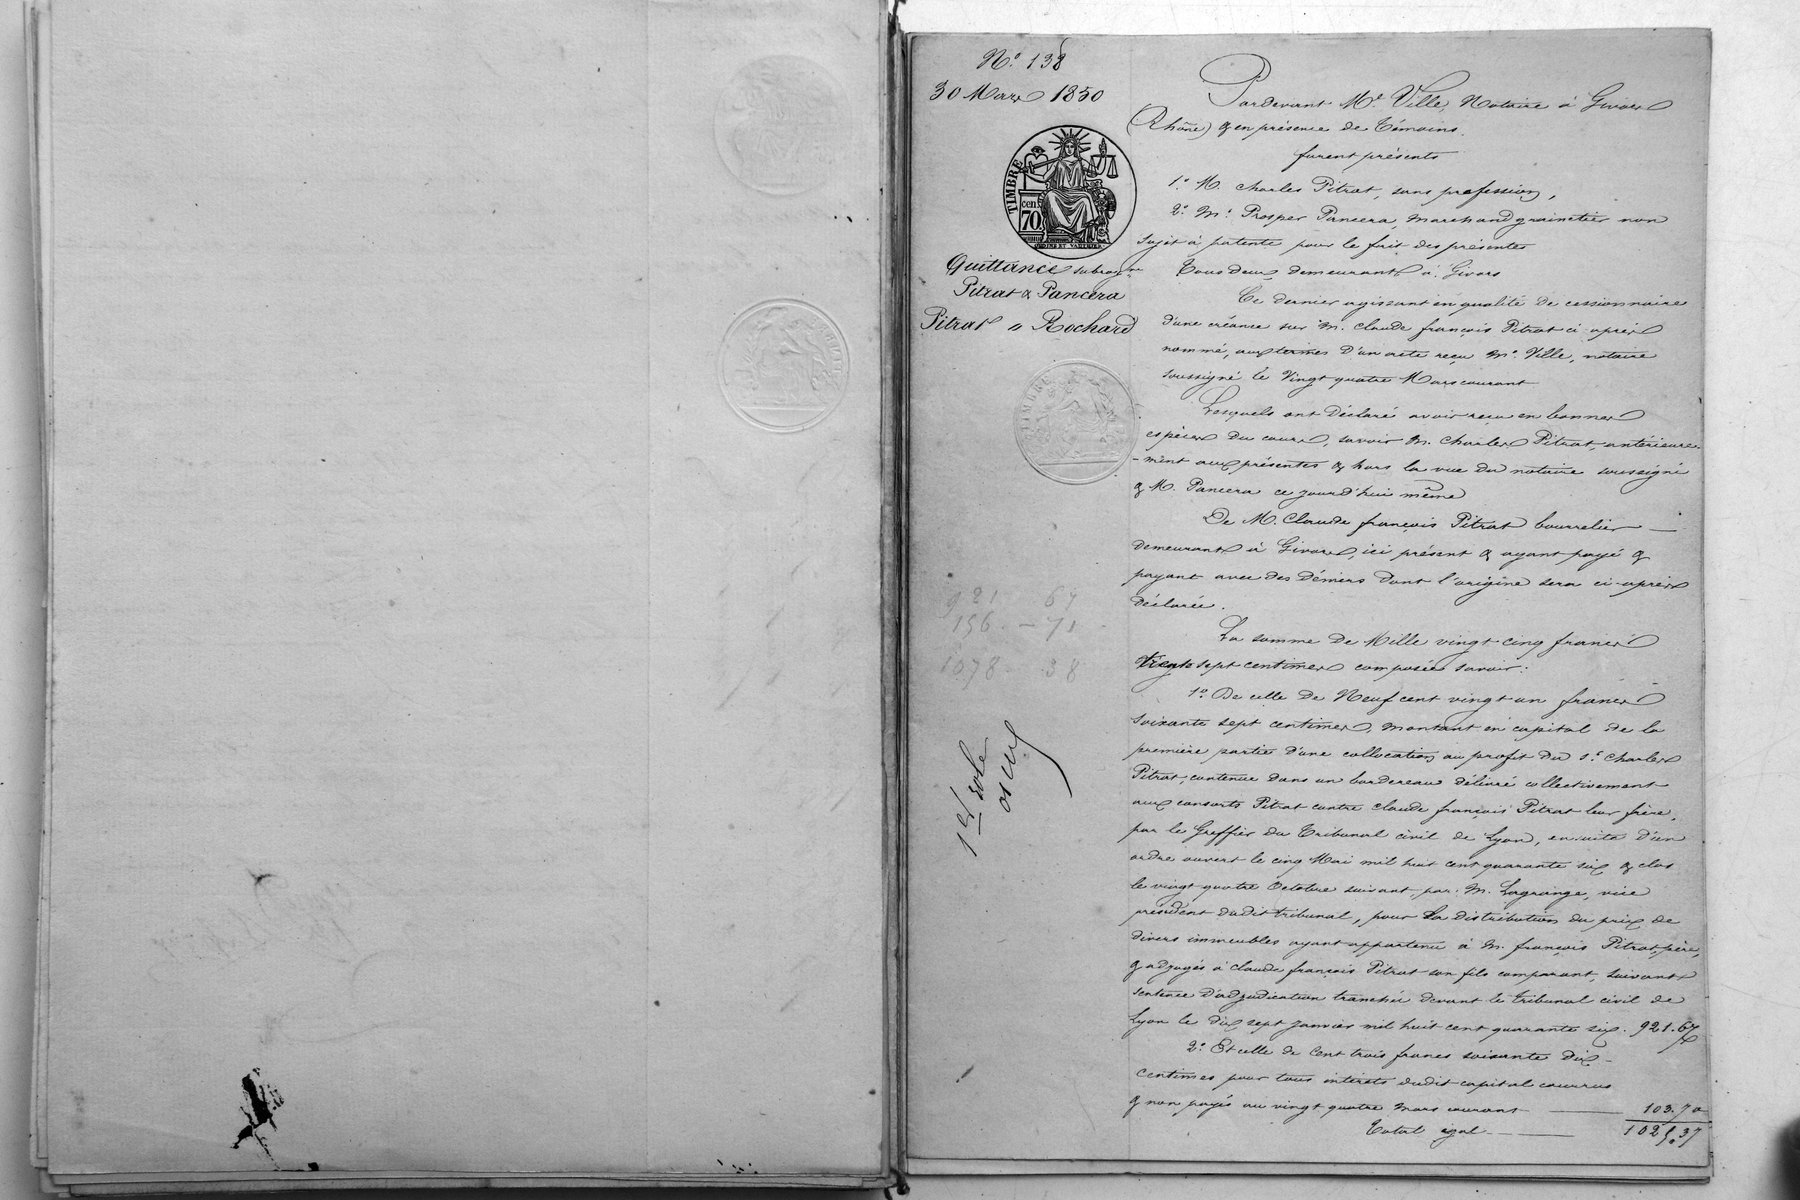 N.° 138
30 Mars 1850
TIMBRE
cen.
70
Quittance subrog.ve
Pitrat & Pancera
Pitrat à Rochard
TIMBRE
921 67
156 — 71
1078 38
1er role
Pardevant Me Ville, Notaire à Givors
(Rhône) & en présence de témoins,
furent présents
1.° M. Charles Pitrat, sans profession,
2.° Mr. Prosper Pancera, marchand grainetier non
sujet à patente pour le fait des présentes
Tous deux demeurant à Givors
Ce dernier agissant en qualité de cessionnaire
d'une créance sur M. Claude françois Pitrat ci après
nommé, aux termes d'un acte reçu Me. Ville, notaire
soussigné le Vingt quatre Mars courant
Lesquels ont déclaré avoir reçu en bonnes
espèces du cours, savoir M. Charles Pitrat, antérieure
-ment aux présentes & hors la vue du notaire soussigné
& M. Pancera ce jourd'hui même
De M. Claude françois Pitrat bourrelier —
demeurant à Givors, ici présent & ayant payé &
payant avec des deniers dont l'origine sera ci-après
déclarée.
La somme de Mille vingt cinq francs
trente sept centimes composée savoir:
1.° De celle de Neuf cent vingt un francs
soixante sept centimes, montant en capital de la
première partie d'une collocation au profit du sr. Charles
Pitrat, contenue dans un bordereau délivré collectivement
aux consorts Pitrat contre Claude françois Pitrat leur frère,
par le Greffier du Tribunal civil de Lyon, ensuite d'un
ordre ouvert le cinq Mai mil huit cent quarante six & clos
le vingt quatre Octobre suivant, par M. Lagrange, vice
président dudit tribunal, pour la distribution du prix de
divers immeubles ayant appartenu à M. françois Pitrat père,
& adjugés à Claude françois Pitrat son fils comparant, suivant
sentence d'adjudication tranchée devant le tribunal civil de
Lyon le dix sept janvier mil huit cent quarante six. 921.67
2.° Et celle de Cent trois francs soixante dix
centimes pour tous intérêts dudit capital courrus
& non payés au vingt quatre mars courant — 103.70
Total egal — 1025.37